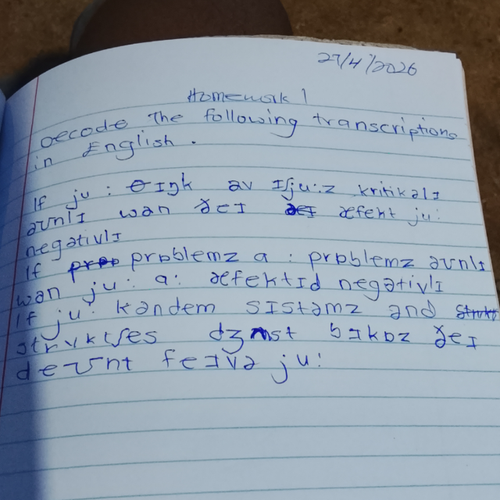 27/4/2026
Homework 1
Decode The following transcriptions
in English.
If ju: θɪŋk av ɪʃju:z kritikəlɪ
əʊnlɪ wan ðeɪ æfekt ju:
negətivlɪ
If prɒblemz a: prɒblemz əʊnlɪ
wan ju: a: æfektɪd negətivlɪ
If ju: kəndem sɪstəmz and
strʌkʧəs dʒʌst bɪkɒz ðeɪ
dəʊnt feɪvə ju: